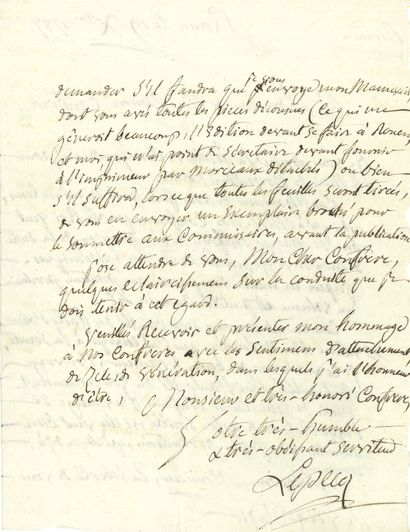 demander s'il faudra que je vous envoye mon Manuscrit
dont vous avés toutes les pieces décousues (ce qui me
gêneroit beaucoup, l'Edition devant se faire à Rouen,
et moi, qui n'ai point de Secretaire devant fournir
à l'imprimeur par Morceaux détachés) ou bien
s'il suffira, lorsque toutes les feuilles seront tirées,
de vous en envoyer un exemplaire broché, pour
le soumettre aux Commissaires, avant la publication
J'ose attendre de vous, Mon Cher Confrere,
quelques eclaircissemens sur la conduite que je
dois tenir à cet egard.
Veuillés Recevoir et présenter mon hommage
à Nos Confreres avec les Sentimens d'attachement
de Zele, de Vénération, dans lesquels j'ai l'honneur
d'être,
Monsieur et très-honoré Confrere,
Votre très-humble
& très-obéissant Serviteur
Lepecq